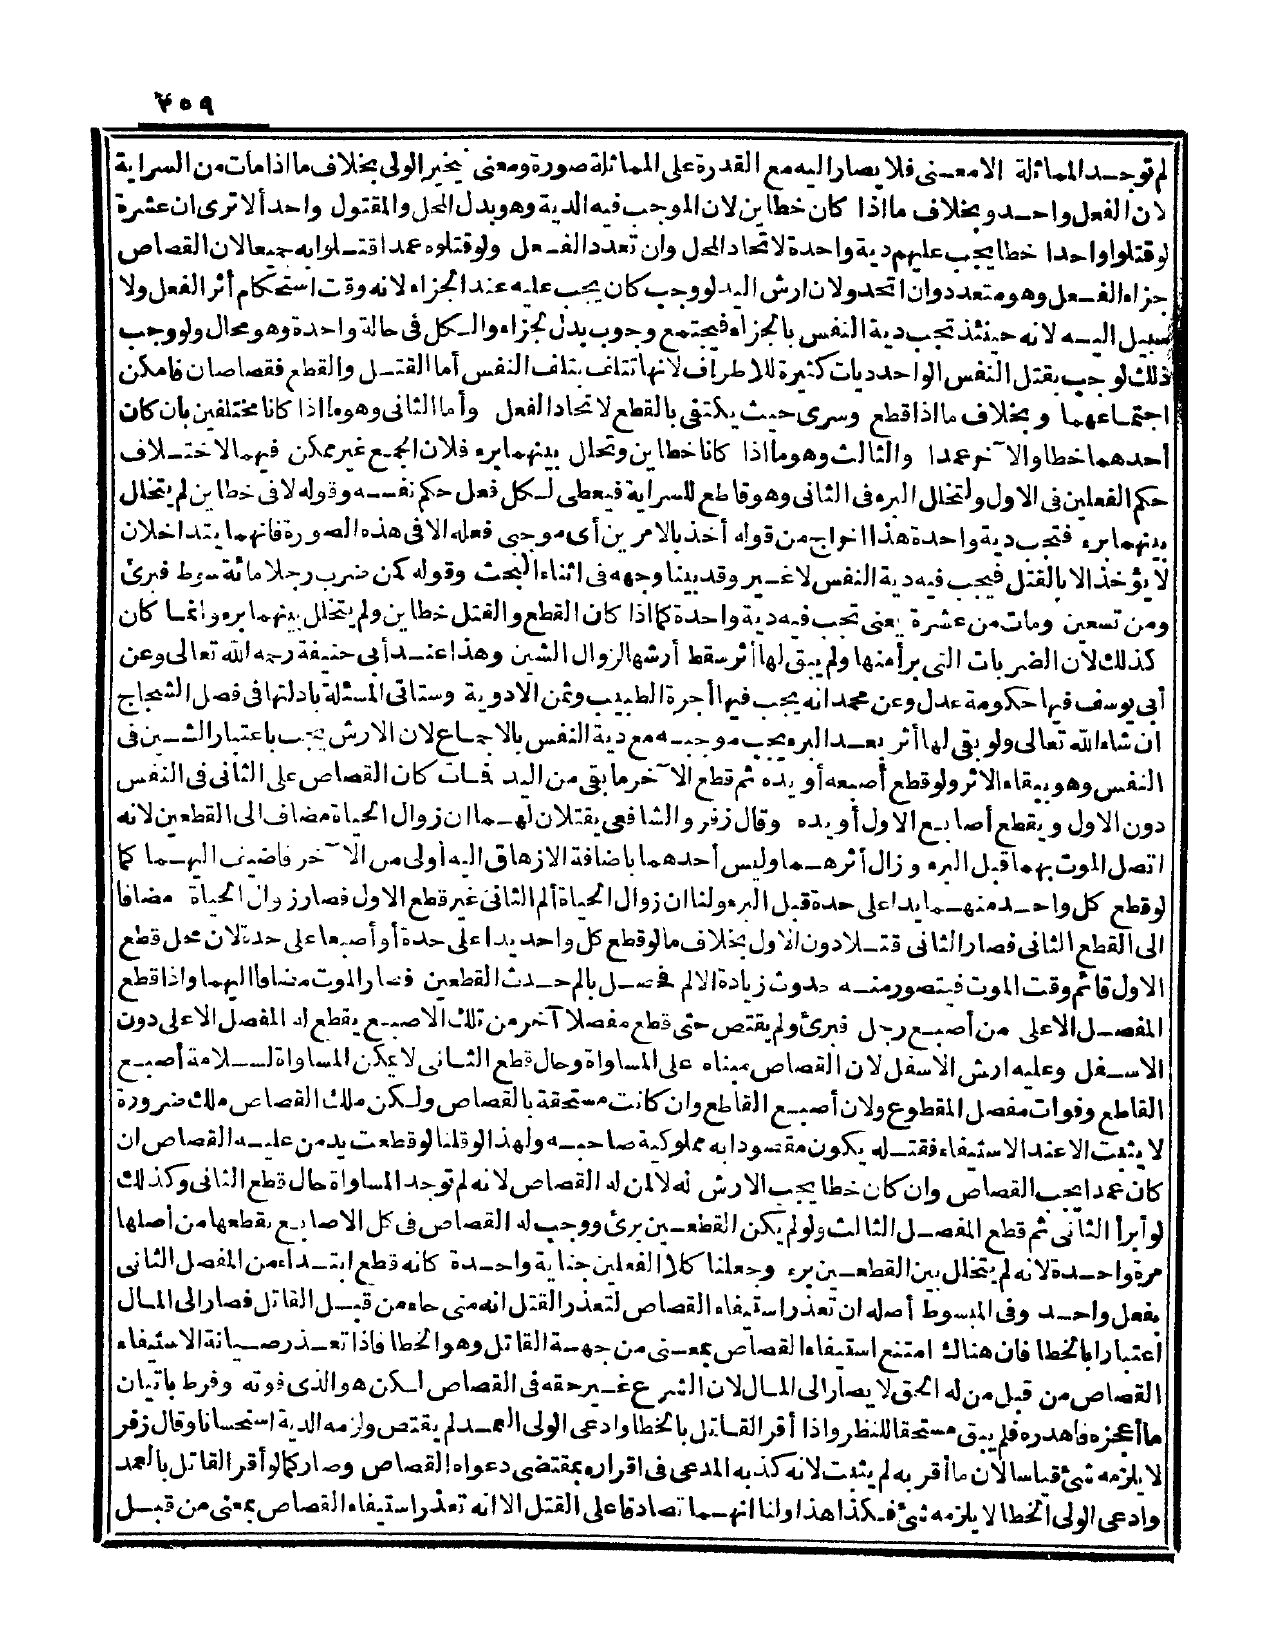 ٢٥٩
لم توجد المماثلة الا معنى فلا يصار اليه مع القدرة على المماثلة صورة ومعنى يخير الولى بخلاف ما اذا مات من السراية
لان الفعل واحد وبخلاف ما اذا كان خطاين لان الموجب فيه الدية وهو بدل المحل والمقتول واحد ألا ترى ان عشرة
لو قتلوا واحدا خطا يجب عليهم دية واحدة لاتحاد المحل وان تعدد الفعل ولو قتلوه عمدا قتلوا به جميعا لان القصاص
جزاء الفعل وهو متعدد وان اتحد ولان ارش اليد لو وجب كان يجب عليه عند الجزاء لانه وقت استحكام أثر الفعل ولا
سبيل اليه لانه حينئذ تجب دية النفس بالجزاء فيجتمع وجوب بدل الجزاء والكل فى حالة واحدة وهو محال ولو وجب
ذلك لوجب بقتل النفس الواحد ديات كثيرة للاطراف لانها تتلف بتلف النفس أما القتل والقطع فقصاصان فامكن
اجتماعهما وبخلاف ما اذا قطع وسرى حيث يكتفى بالقطع لاتحاد الفعل وأما الثانى وهو ما اذا كانا مختلفين بان كان
أحدهما خطا والآخر عمدا والثالث وهو ما اذا كانا خطاين وتخلل بينهما برء فلان الجمع غير ممكن فيهما لاختلاف
حكم الفعلين فى الاول ولتخلل البرء فى الثانى وهو قاطع للسراية فيعطى لكل فعل حكم نفسه وقوله لا فى خطاين لم يتخلل
بينهما برء فتجب دية واحدة هذا اخراج من قوله أخذ بالامرين أى موجبى فعله الا فى هذه الصورة فانهما يتداخلان
لا يؤخذ الا بالقتل فيجب فيه دية النفس لا غير وقد بينا وجهه فى اثناء البحث وقوله كمن ضرب رجلا مائة سوط فبرئ
ومن تسعين ومات من عشرة يعنى تجب فيه دية واحدة كما اذا كان القطع والقتل خطاين ولم يتخلل بينهما برء وانما كان
كذلك لان الضربات التى برأ منها ولم يبق لها أثر سقط أرشها لزوال الشين وهذا عند أبى حنيفة رحمه الله تعالى وعن
أبى يوسف فيها حكومة عدل وعن محمد انه يجب فيها أجرة الطبيب وثمن الادوية وستاتى المسئلة بادلتها فى فصل الشجاج
ان شاء الله تعالى ولو بقى لها أثر بعد البرء يجب موجبه مع دية النفس بالاجماع لان الارش يجب باعتبار الشين فى
النفس وهو ببقاء الاثر ولو قطع أصبعه أو يده ثم قطع الآخر ما بقى من اليد فمات كان القصاص على الثانى فى النفس
دون الاول ويقطع أصابع الاول أو يده وقال زفر والشافعى يقتلان لهما ان زوال الحياة مضاف الى القطعين لانه
اتصل الموت بهما قبل البرء وزال أثرهما وليس أحدهما باضافة الازهاق اليه أولى من الآخر فاضيف اليهما كما
لو قطع كل واحد منهما يدا على حدة قبل البرء ولنا ان زوال الحياة ألم الثانى غير قطع الاول فصار زوال الحياة مضافا
الى القطع الثانى فصار الثانى قتلا دون الاول بخلاف ما لو قطع كل واحد يدا على حدة أو أصبعا على حدة لان محل قطع
الاول قائم وقت الموت فيتصور منه حدوث زيادة الالم فحصل بالم حدث القطعين فصار الموت مضافا اليهما واذا قطع
المفصل الاعلى من أصبع رجل فبرئ ولم يقتص حتى قطع مفصلا آخر من تلك الاصبع يقطع له المفصل الاعلى دون
الاسفل وعليه ارش الاسفل لان القصاص مبناه على المساواة وحال قطع الثانى لا يمكن المساواة لسلامة أصبع
القاطع وفوات مفصل المقطوع ولان أصبع القاطع وان كانت مستحقة بالقصاص ولكن ملك القصاص ملك ضرورة
لا يثبت الا عند الاستيفاء فقتله يكون مقصودا به مملوكية صاحبه ولهذا لو قلنا لو قطعت يد من عليه القصاص ان
كان عمدا يجب القصاص وان كان خطا يجب الارش له لا لمن له القصاص لانه لم توجد المساواة حال قطع الثانى وكذلك
لو أبرأ الثانى ثم قطع المفصل الثالث ولو لم يكن القطعين برئ ووجب له القصاص فى كل الاصابع يقطعها من أصلها
مرة واحدة لانه لم يتخلل بين القطعين برء وجعلنا كلا الفعلين جناية واحدة كانه قطع ابتداء من المفصل الثانى
بفعل واحد وفى المبسوط أصله ان تعذر استيفاء القصاص لتعذر القتل انه متى جاء من قبل القاتل فصار الى المال
اعتبارا بالخطا فان هناك امتنع استيفاء القصاص بمعنى من جهة القاتل وهو الخطا فاذا تعذر صيانة الاستيفاء
القصاص من قبل من له الحق لا يصار الى المال لان الشرع غير حقه فى القصاص لكن هو الذى فوته وفرط باتيان
ما أعجزه فاهدره فلم يبق مستحقا للنظر واذا أقر القاتل بالخطا وادعى الولى العمد لم يقتص ولزمه الدية استحسانا وقال زفر
لا يلزمه شئ قياسا لان ما أقر به لم يثبت لانه كذبه المدعى فى اقراره بمقتضى دعواه القصاص وصار كما لو أقر القاتل بالعمد
وادعى الولى الخطا لا يلزمه شئ فكذا هذا ولنا انهما تصادقا على القتل الا انه تعذر استيفاء القصاص بمعنى من قبل